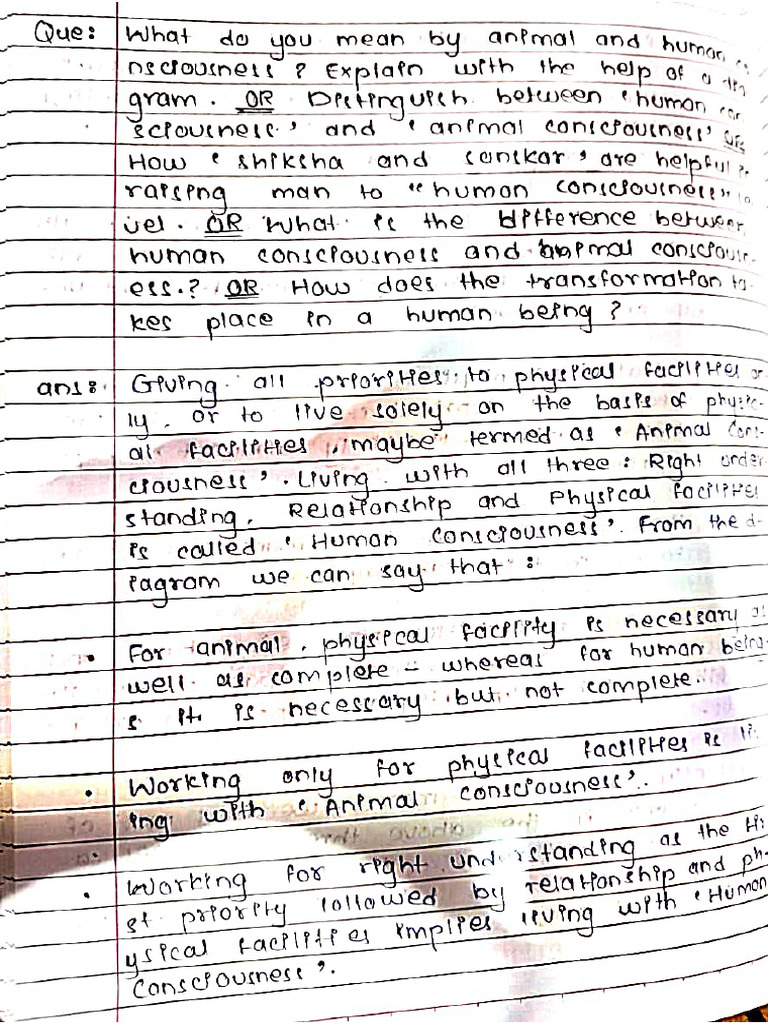 Que: What do you mean by animal and human co
nsciousness ? Explain with the help of a dia
gram. OR Distinguish between 'human con
sciousness' and 'animal consciousness'
How 'shiksha and sanskar' are helpful in
raising man to "human consciousness" le
vel. OR What is the difference between
human consciousness and animal conscious
ess.? OR How does the transformation ta
kes place in a human being ?
ans: Giving all priorities to physical facilities on
ly, or to live solely on the basis of physic
al facilities, maybe termed as 'Animal Cons
ciousness'. Living with all three : Right under
standing, Relationship and Physical facilities
is called 'Human Consciousness'. From the d-
iagram we can say that :
• For animal, physical facility is necessary as
well as complete - whereas for human being
s it is necessary but not complete.
• Working only for physical facilities is liv
ing with 'Animal consciousness'.
• Working for right understanding as the fir
st priority followed by relationship and ph-
ysical facilities implies living with 'Human
Consciousness'.